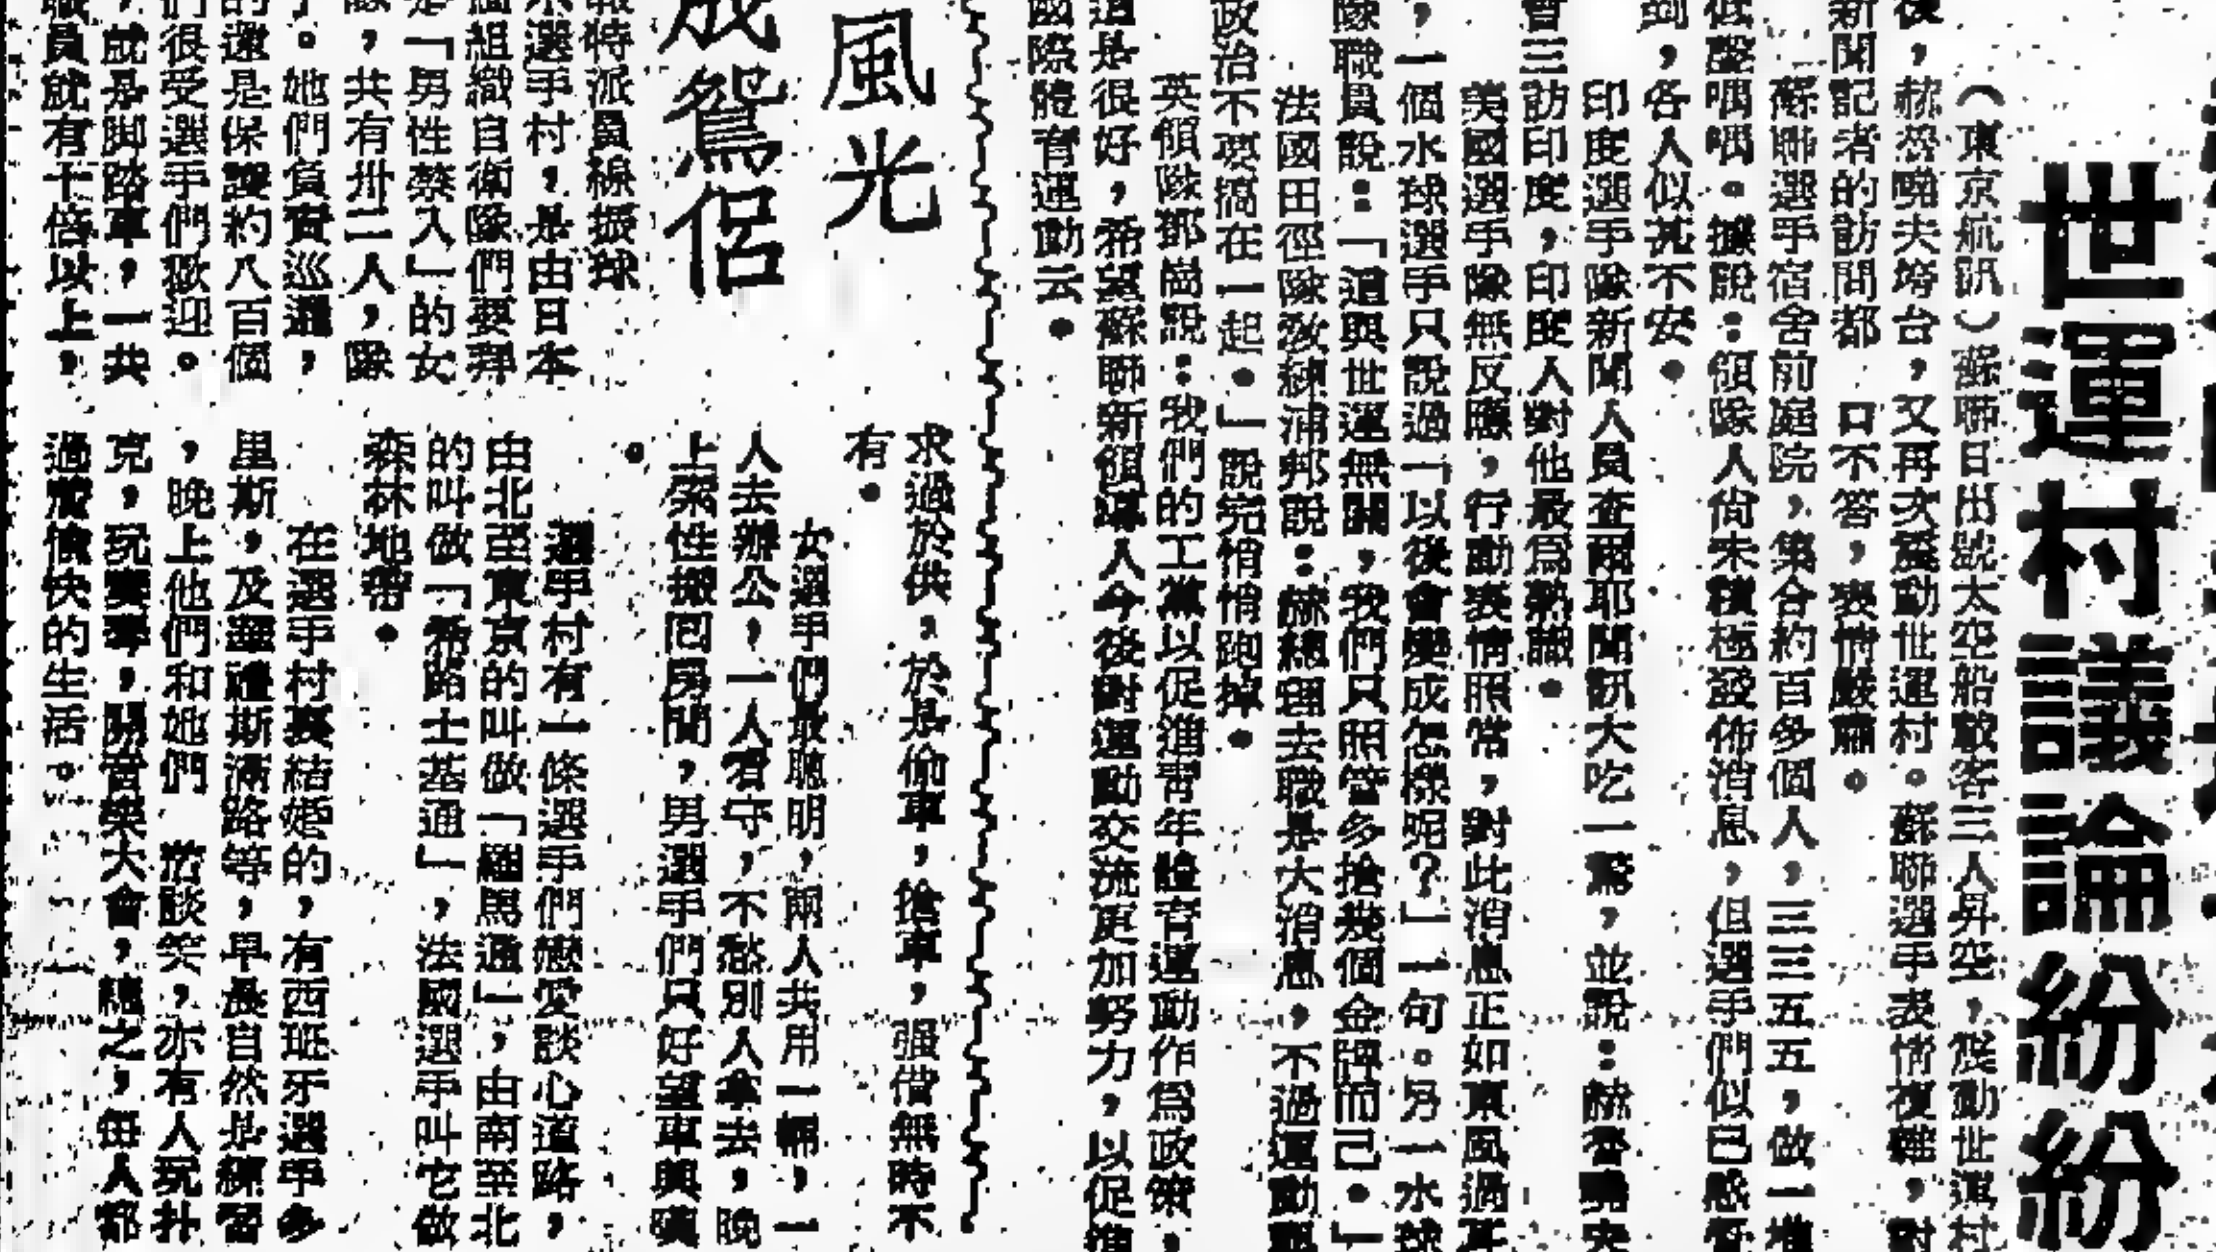 世運村議論紛紛
（東京航訊）蘇聯日出號太空船載客三人昇空，震動世運村
後，赫魯曉夫垮台，又再次震動世運村。蘇聯選手表情複雜，對
新聞記者的訪問都 口不答，表情嚴肅。
蘇聯選手宿舍前庭院，集合約百多個人，三三五五，做一堆
低聲喁喁。據說：領隊人尙未積極發佈消息，但選手們似已感覺
到，各人似甚不安。
印度選手隊新聞人員查兩耶聞訊大吃一驚，並說：赫魯曉夫
曾三訪印度，印度人對他最爲熱識。
美國選手隊無反應，行動表情照常，對此消息正如東風過耳
，一個水球選手只說過「以後會變成怎樣呢？」一句。另一水球
隊職員說：「這與世運無關，我們只照管多搶幾個金牌而己。」
法國田徑隊敎練浦邦說：赫總理去職是大消息，不過運動跟
政治不要搞在一起。」說完悄悄跑掉。
英領隊鄧崗說：我們的工黨以促進靑年體育運動作爲政策，
這是很好，希望蘇聯新領導人今後對運動交流更加努力，以促進
國際體育運動云。
風光
成鴛侶
報特派員線振球
選手村，是由日本
組織自衛隊們要拜
是「男性禁入」的女
隊，共有卅二人，隊
。她們負責巡邏，
的還是保護約八百個
們很受選手們歡迎。
，就是脚踏車，一共
職員就有十倍以上，
求過於供，於是偷車，搶車，强借無時不
有。
女選手們最聰明，兩人共用一輛，一
人去辦公，一人看守，不愁別人拿去，晚
上索性搬回房間，男選手們只好望車興嘆
。
選手村有一條選手們戀愛談心道路，
由北至東京的叫做「羅馬通」，由南至北
的叫做「希路士基通」，法國選手叫它做
森林地帶。
在選手村裏結婚的，有西班牙選手多
里斯，及羅禮斯滿路等，早晨自然是練習
，晚上他們和她們 於談笑，亦有人玩扑
克，玩賓果，開音樂大會，總之，每人都
過度愉快的生活。